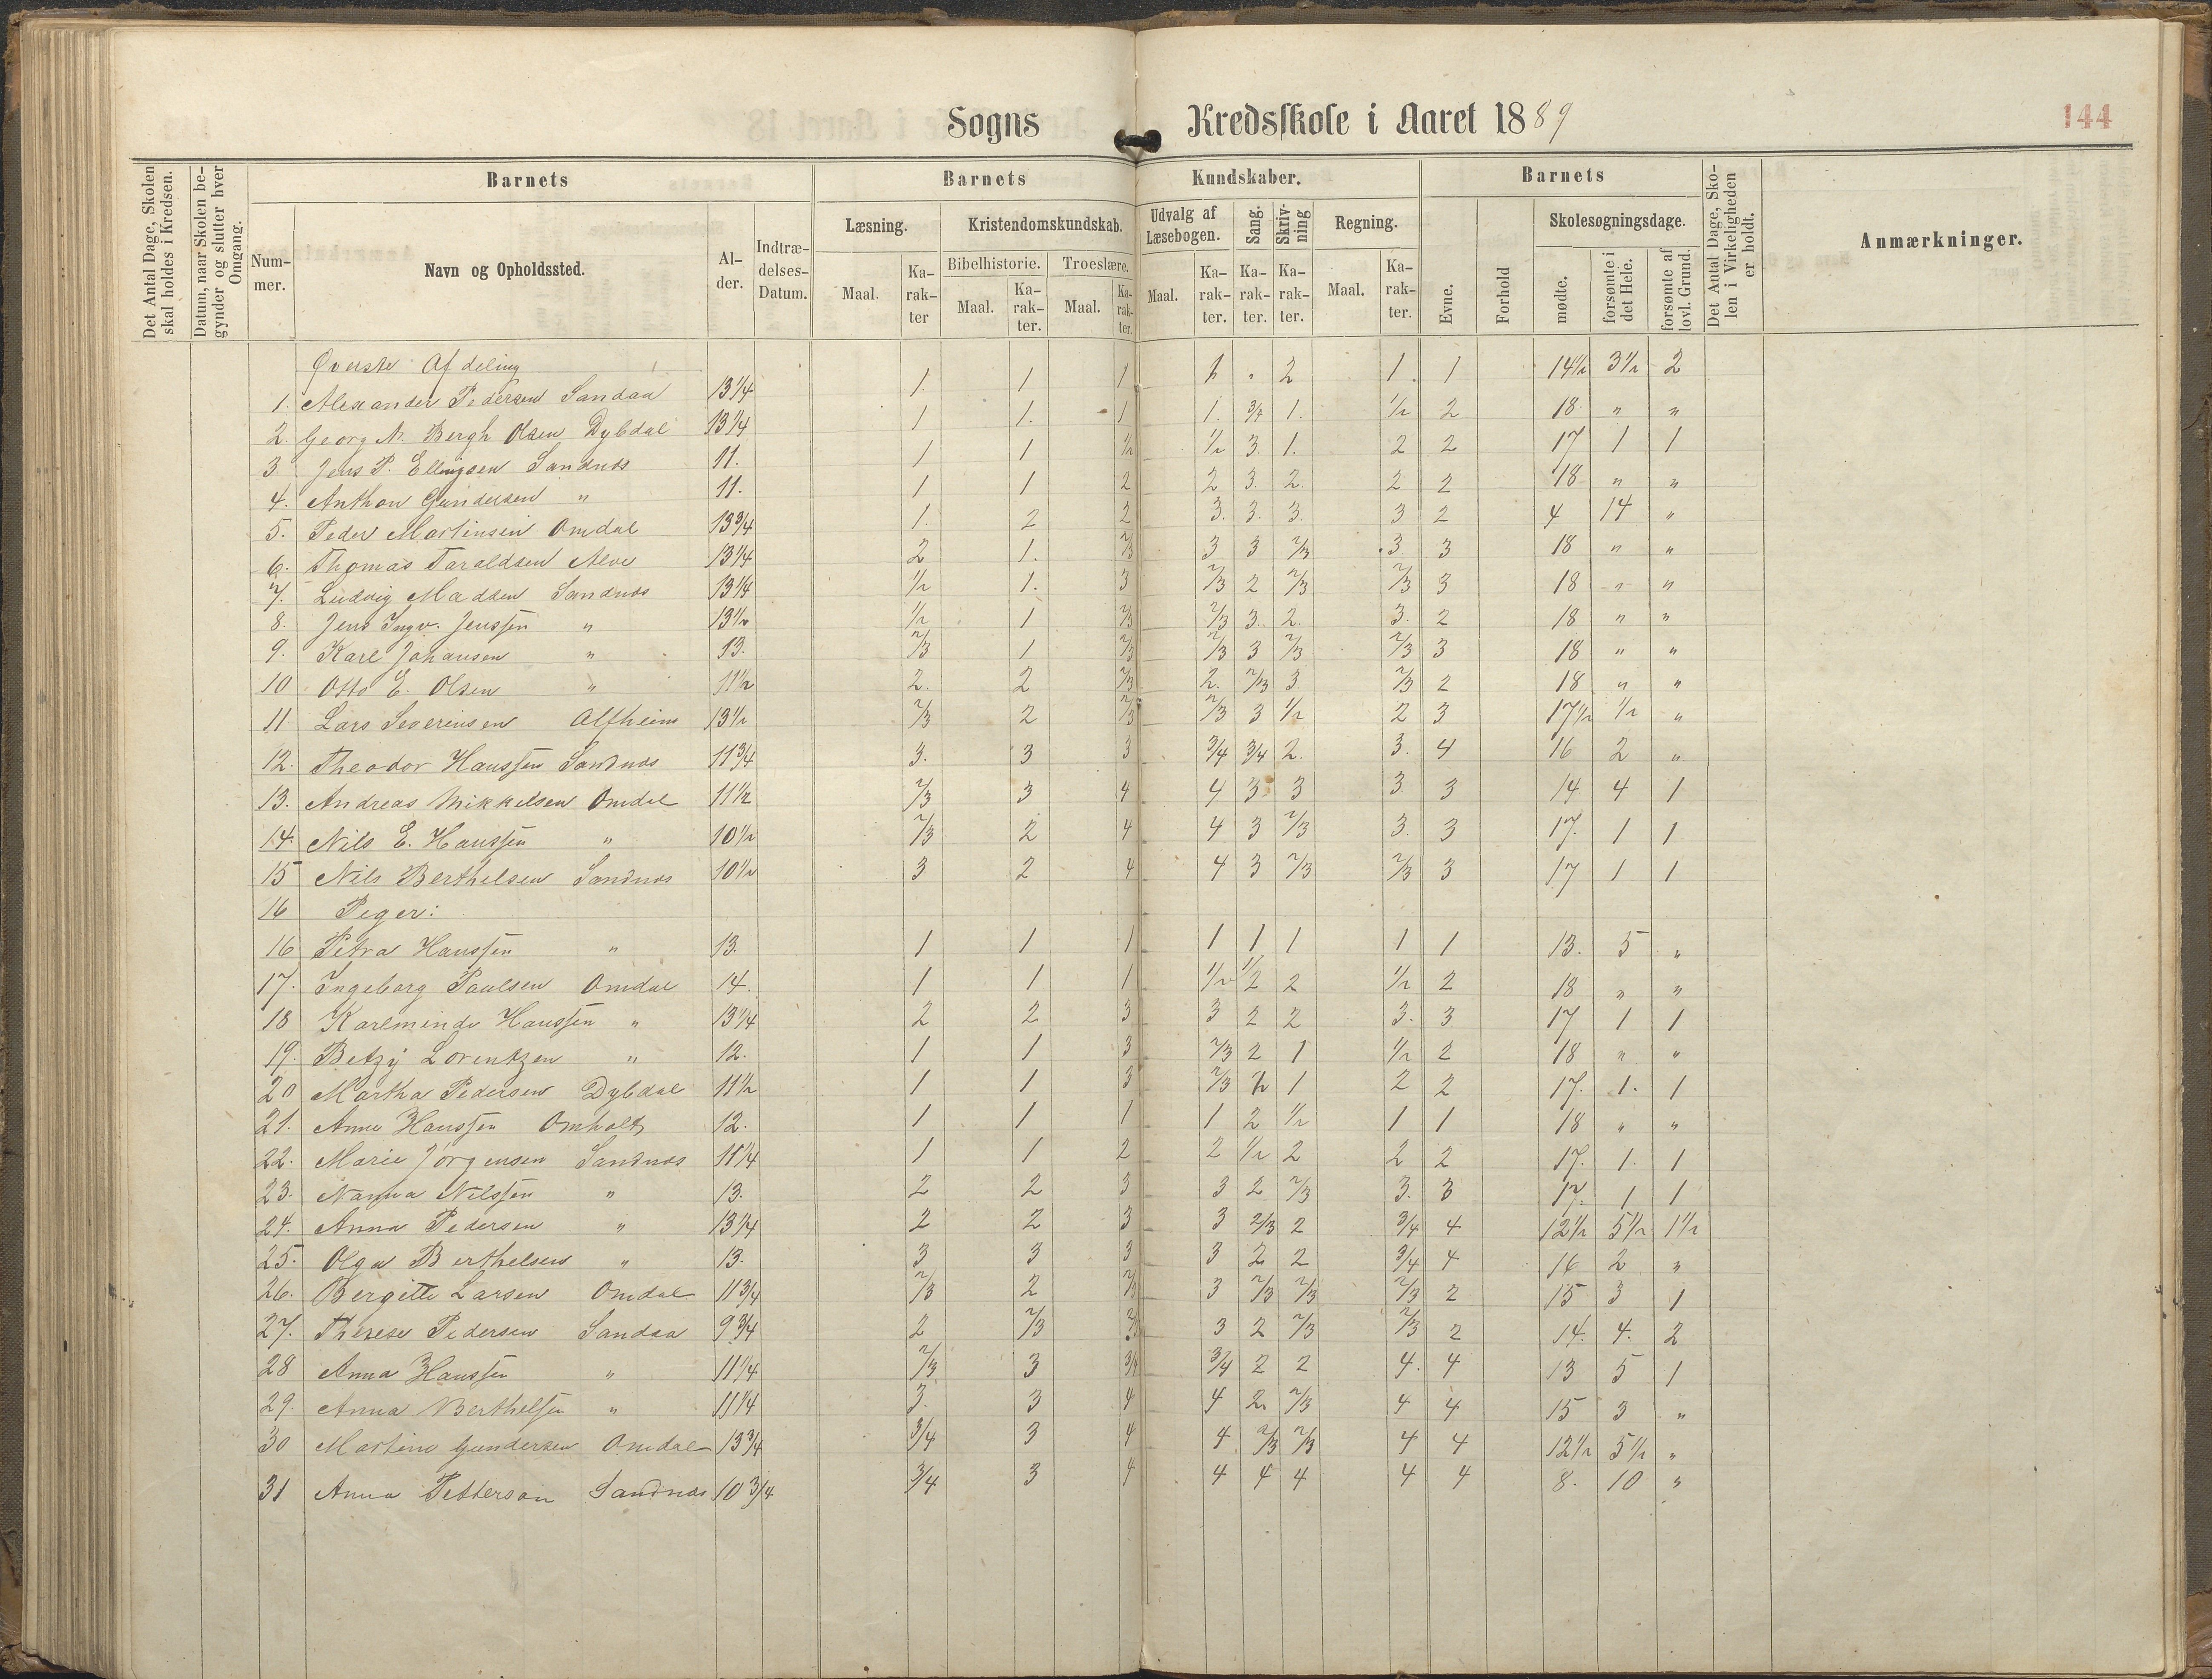 Sogns Kredsskole i Aaret 1889 144
Det Antal Dage, Skolen skal holdes i Kredsen.
Datum, naar Skolen begynder og slutter hver Omgang.
Barnets
Nummer.
Navn og Opholdssted.
Alder.
Indtrædelses-Datum.
Barnets Kundskaber.
Læsning.
Maal. Karakter
Kristendomskundskab.
Bibelhistorie. Troeslære.
Maal. Karakter. Maal. Karakter.
Udvalg af Læsebogen.
Maal. Karakter.
Sang. Karakter.
Skrivning Karakter.
Regning.
Maal. Karakter.
Barnets
Evne.
Forhold
Skolesøgningsdage.
mødte. forsømte i det Hele. forsømte af lovl. Grund.
Det Antal Dage, Skolen i Virkeligheden er holdt.
Anmærkninger.
Øverste Afdeling
1. Alexander Pedersen Sandaa 13 1/4 1. 1 1 1 " 2 1. 1 14 1/2 3 1/2 2
2. Georg N. Bergh Olsen Dybdal 13 1/4 1 1. 1 1. 3/4 1. 1/2 2 18 " "
3. Jens P. Ellingsen Sandnes 11. 1 1 1/2 1/2 3. 1. 2 2 17 1 1
4. Anthon Gundersen " 11. 1 1 2 2 3. 2. 2 2 18 " "
5. Peder Martinsen Omdal 13 3/4 1. 2 2 3. 3. 3. 3 2 4 14 "
6. Thomas Taraldsen Alve 13 1/4 2 1. 2/3 3 3 2/3 3 3 18 " "
7. Ludvig Madsen Sandnes 13 1/4 1/2 1. 3 2/3 2 2/3 2/3 3 18 " "
8. Jens Ingv. Jenssen " 13 1/2 1/2 1 2/3 2/3 3. 2. 3. 2 18 " "
9. Karl Johansen " 13. 2/3 1 2/3 2/3 3 2/3 2/3 3 18 " "
10 Otto E. Olsen " 11 1/2 2. 2 2/3 2. 2/3 3 2/3 2 18 " "
11 Lars Severinsen Alfheim 13 1/2 2/3 2 2/3 2/3 3 1/2 2 3 17 1/2 1/2 "
12. Theodor Hanssen Sandnes 11 3/4 3. 3 3 3/4 3/4 2. 3. 4 16 2 "
13. Andreas Mikkelsen Omdal 11 1/2 2/3 3 4 4 3 3 3. 3 14 4 1
14. Nils E. Hanssen " 10 1/2 2/3 2 4 4 3 2/3 3. 3 17. 1 1
15 Nils Berthelsen Sandnes 10 1/2 3 2 4 4 3 2/3 2/3 3 17 1 1
16 Piger:
16 Petra Hanssen " 13. 1 1 1 1 1 1 1 1 13. 5 "
17. Ingeborg Paulsen Omdal 14. 1 1 1 1/2 1/2 2 1/2 2 18 " "
18 Karlminde Hanssen " 13 1/4 2 2 3 3 2 2 3. 3 17 1 1
19. Betzy Lorentzen " 12. 1 1 3 2/3 2 1 1/2 2 18 " "
20 Martha Pedersen Dybdal 11 1/2 1 1 3 2/3 2 1 2 2 17. 1. 1
21. Anne Hanssen Omholt 12. 1 1 1 1 2 1/2 1 1 18 " "
22. Marie Jörgensen Sandnes 11 1/4 1 1 2 2 1/2 2 2 2 17. 1. 1
23. Nanna Nilssen " 13. 2 2 3 3 2 2/3 3. 3 17. 1 1
24. Anna Pedersen " 13 1/4 2 2 3 3 2/3 2 3/4 4 12 1/2 5 1/2 1 1/2
25. Olga Berthelsen " 13. 3 3 3 3 2 2 3/4 4 16 2 "
26. Bergitte Larsen Omdal 11 3/4 2/3 2 2/3 3 2/3 2/3 2/3 2 15 3 1
27. Therese Pedersen Sandaa 9 3/4 2 2/3 2/3 3 2 2/3 2/3 2 14. 4. 2
28 Anna Hanssen " 11 1/4 2/3 3 3/4 3/4 2 2 4. 4 13 5 1
29. Anna Berthelsen " 11 1/4 3. 3 4 4 2. 2/3 4 4 15 3 "
30 Martine Gundersen Omdal 13 3/4 3/4 3 4 4 2/3 2/3 4 4 12 1/2 5 1/2 "
31 Anna Petterson Sandnes 10 3/4 3/4 3 4 4 4 4 4 4 8. 10 "